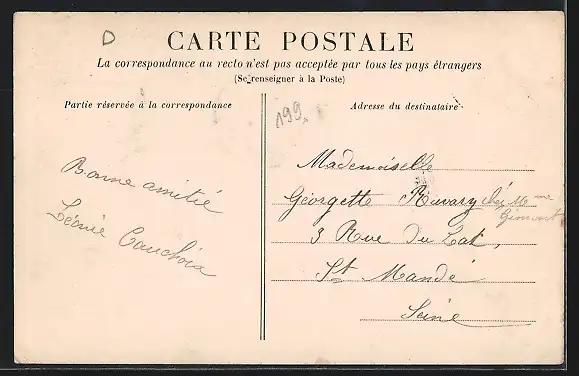 D
CARTE POSTALE
La correspondance au recto n'est pas acceptée par tous les pays étrangers
(Se renseigner à la Poste)
Partie réservée à la correspondance
Adresse du destinataire
199.
Bonne amitié
Léonie Cauchois
Mademoiselle
Georgette Ravary chez Mme
Gimont
3 Rue du Lac,
St Mandé
Seine